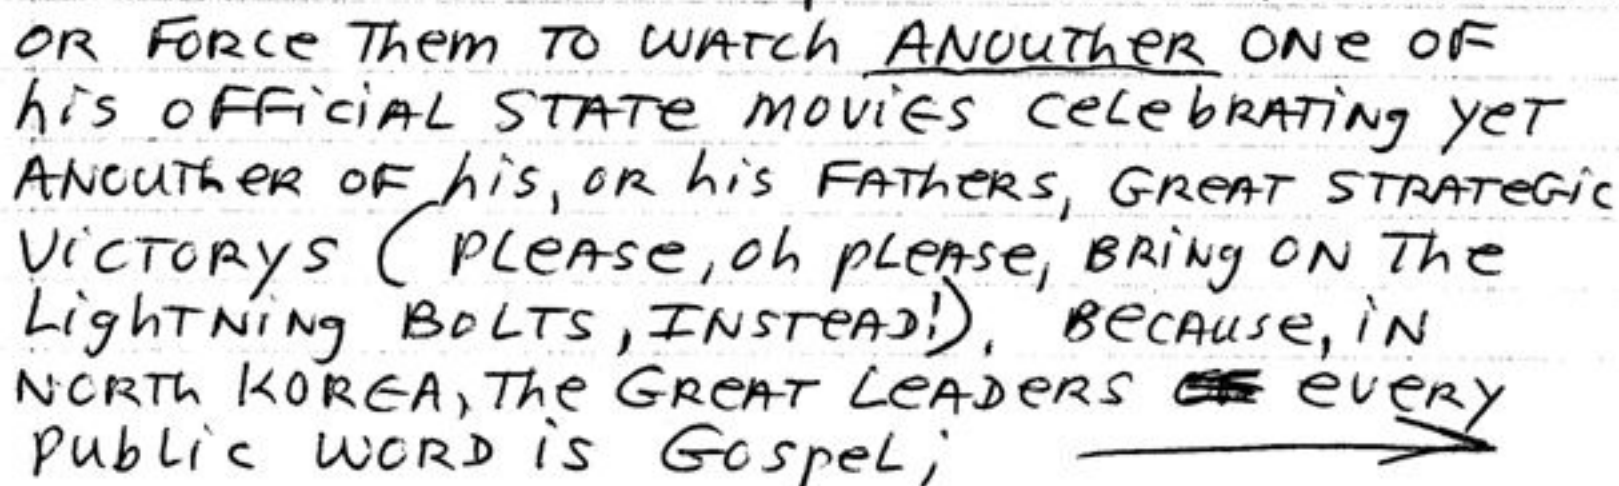 OR FORCe Them TO WATCh ANOUTheR ONe OF
his OFFiCiAL STATe MOViES CeLebRATiNg YeT
ANOUTheR OF his, OR his FATheRS, GReAT STRATeGic
ViCTORYS (PLeASe, Oh pLeASe, BRiNg ON The
LighTNiNg BOLTS, INSTeAD!), BeCAuse, iN
NORTh KOREA, The GReAT LeADeRS eVeRY
PubLic WORD iS GOSpeL;